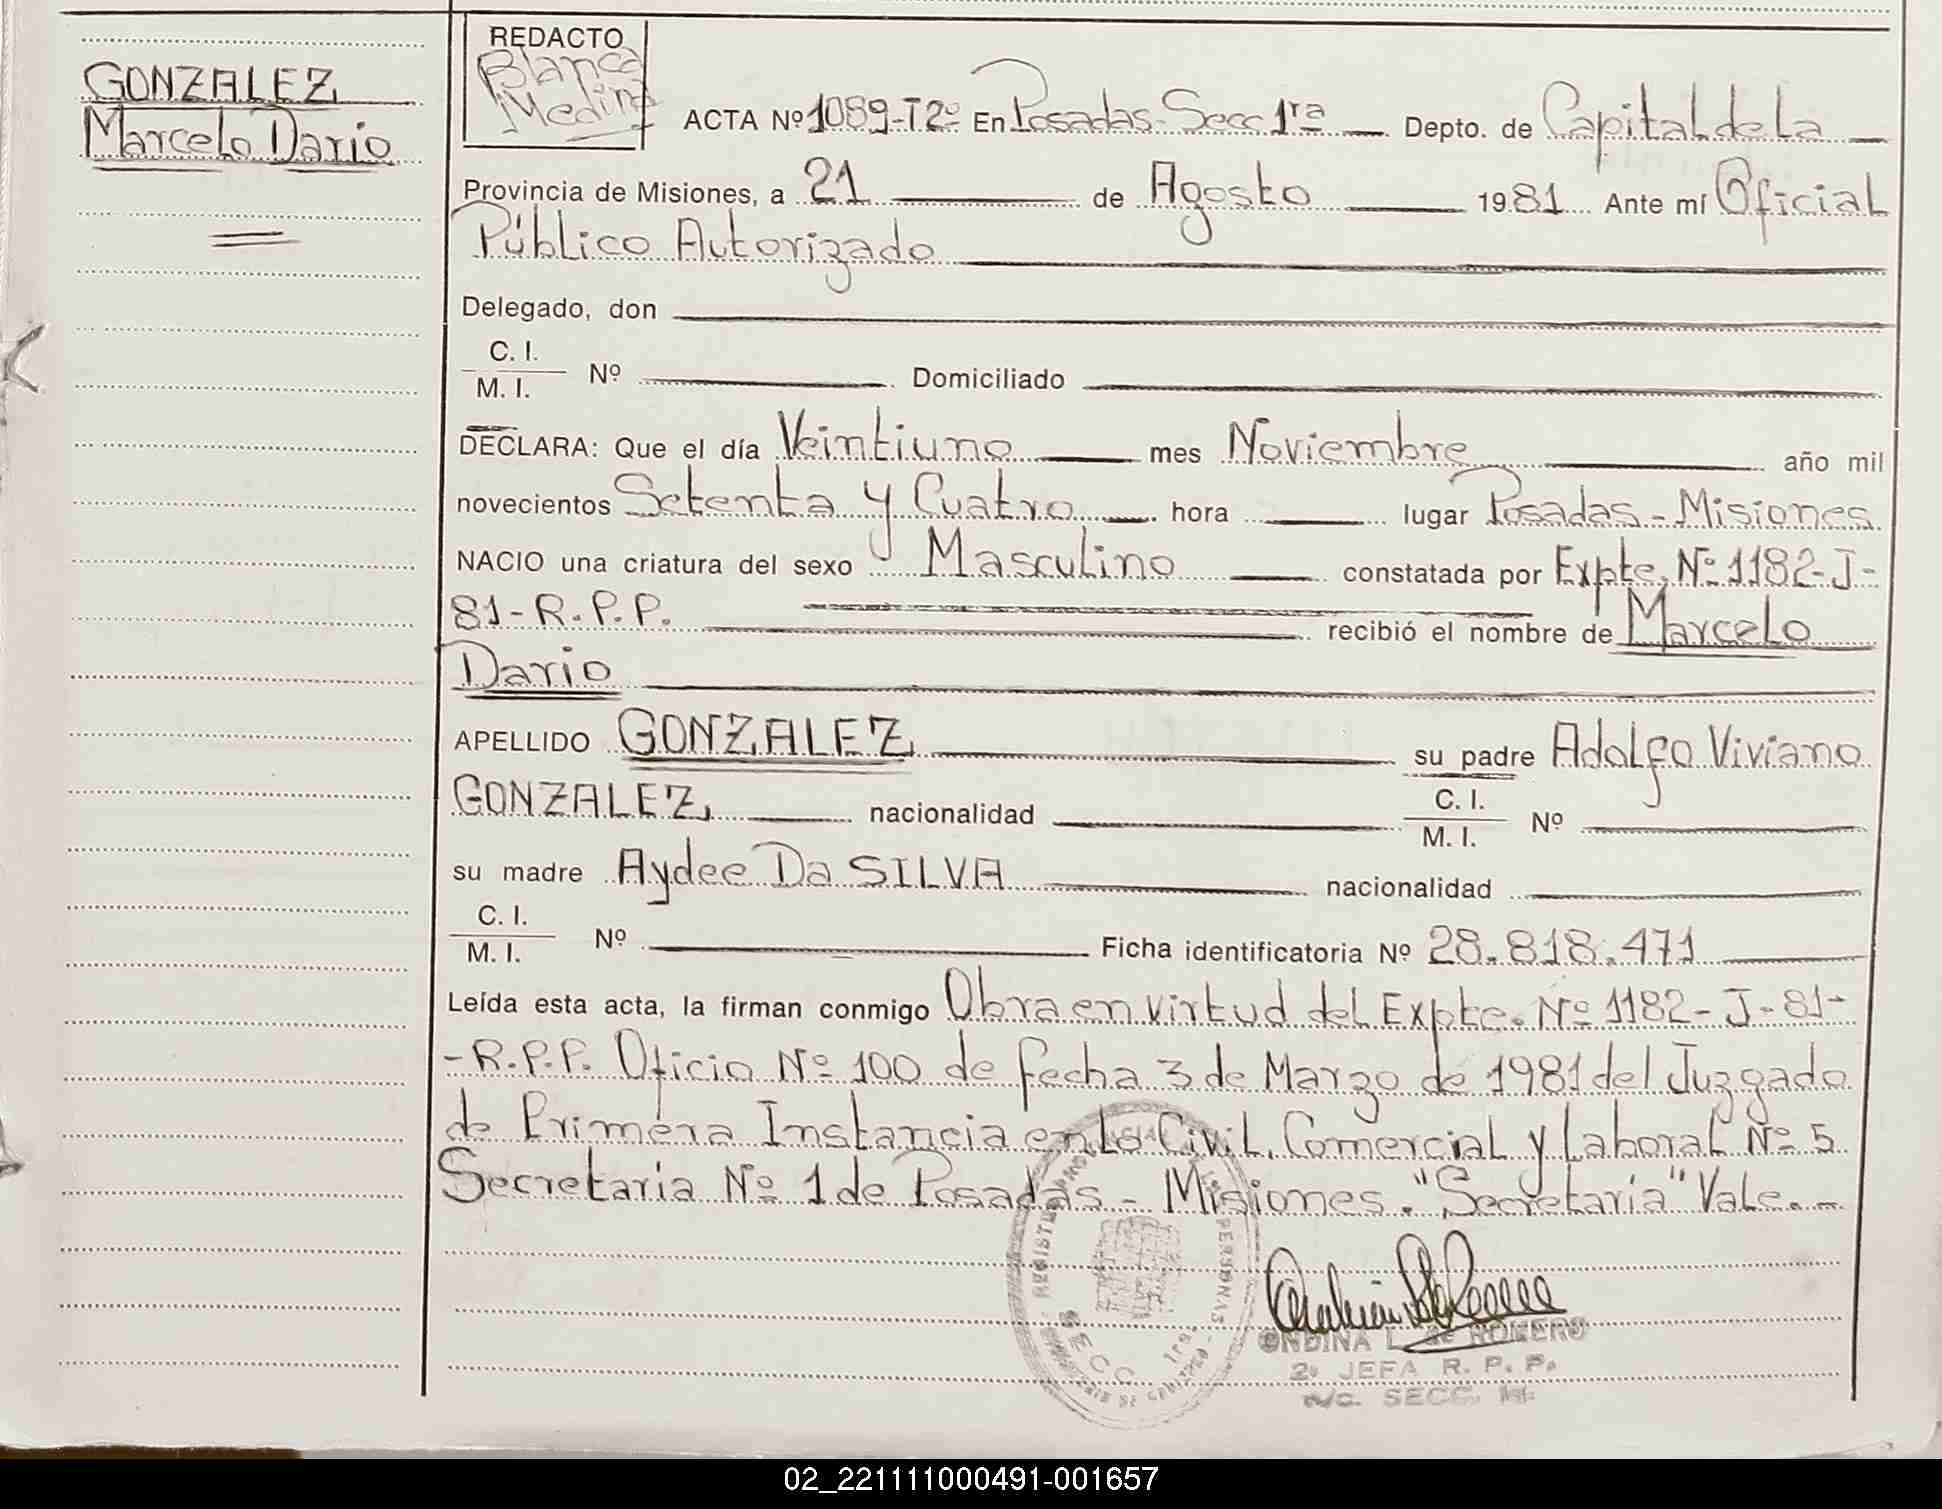 GONZALEZ
Marcelo Dario
REDACTO
Blanca
Medina
ACTA Nº 1089-T2º En Posadas-Secc 1ra Depto. de Capital de la
Provincia de Misiones, a 21 de Agosto 1981 Ante mí Oficial
Público Autorizado
Delegado, don
C. I.
M. I. Nº Domiciliado
DECLARA: Que el día Veintiuno mes Noviembre año mil
novecientos Setenta y Cuatro hora lugar Posadas - Misiones
NACIO una criatura del sexo Masculino constatada por Expte. Nº 1182-J-
81-R.P.P. recibió el nombre de Marcelo
Dario
APELLIDO GONZALEZ su padre Adolfo Viviano
GONZALEZ nacionalidad C. I.
M. I. Nº
su madre Aydee Da SILVA nacionalidad
C. I.
M. I. Nº Ficha identificatoria Nº 28.818.471
Leída esta acta, la firman conmigo Obra en virtud del Expte. Nº 1182-J-81-
-R.P.P. Oficio Nº 100 de fecha 3 de Marzo de 1981 del Juzgado
de Primera Instancia en lo Civil, Comercial y Laboral Nº 5
Secretaria Nº 1 de Posadas - Misiones. "Secretaria" Vale.-
ONDINA L. de ROMERO
2º JEFA R. P. P.
a/c. SECC. 1ª
02_221111000491-001657